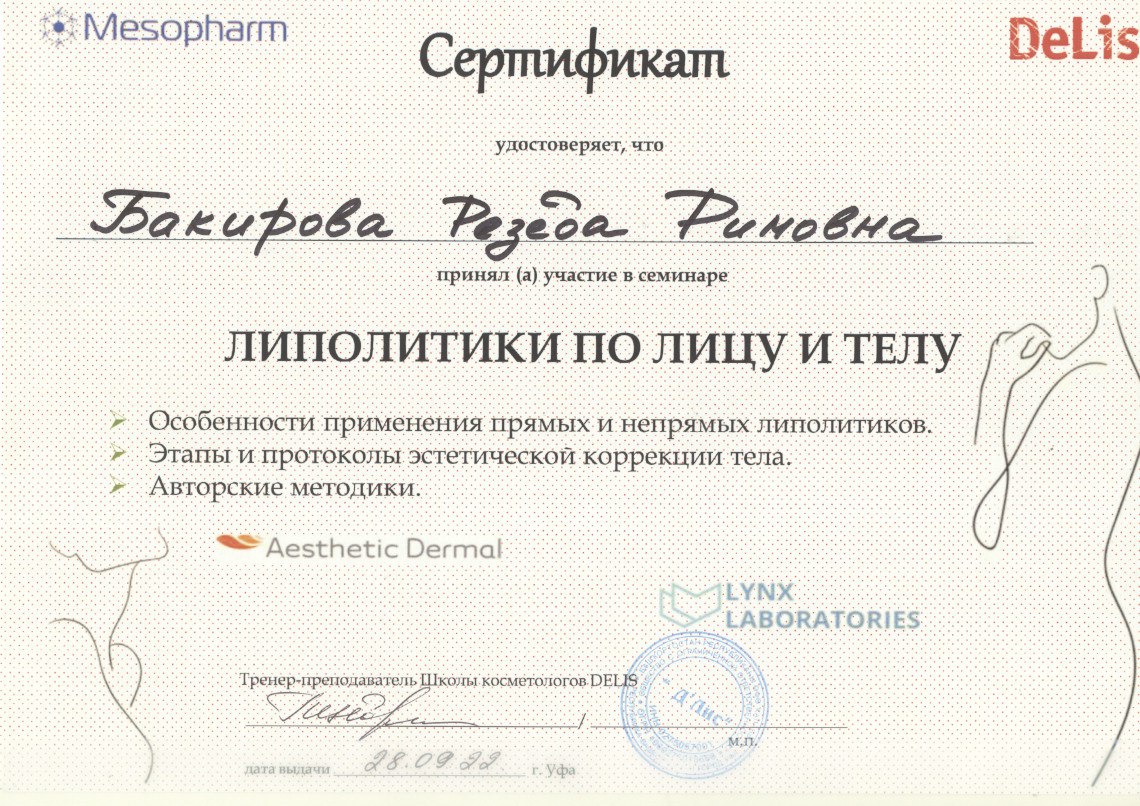 Mesopharm
DeLis
Сертификат
удостоверяет, что
Бакирова Резеда Римовна
принял (а) участие в семинаре
ЛИПОЛИТИКИ ПО ЛИЦУ И ТЕЛУ
Особенности применения прямых и непрямых липолитиков.
Этапы и протоколы эстетической коррекции тела.
Авторские методики.
Aesthetic Dermal
LYNX
LABORATORIES
Тренер-преподаватель Школы косметологов DELIS
/
"Д'Лис"
м.п.
дата выдачи 28.09.22 г. Уфа